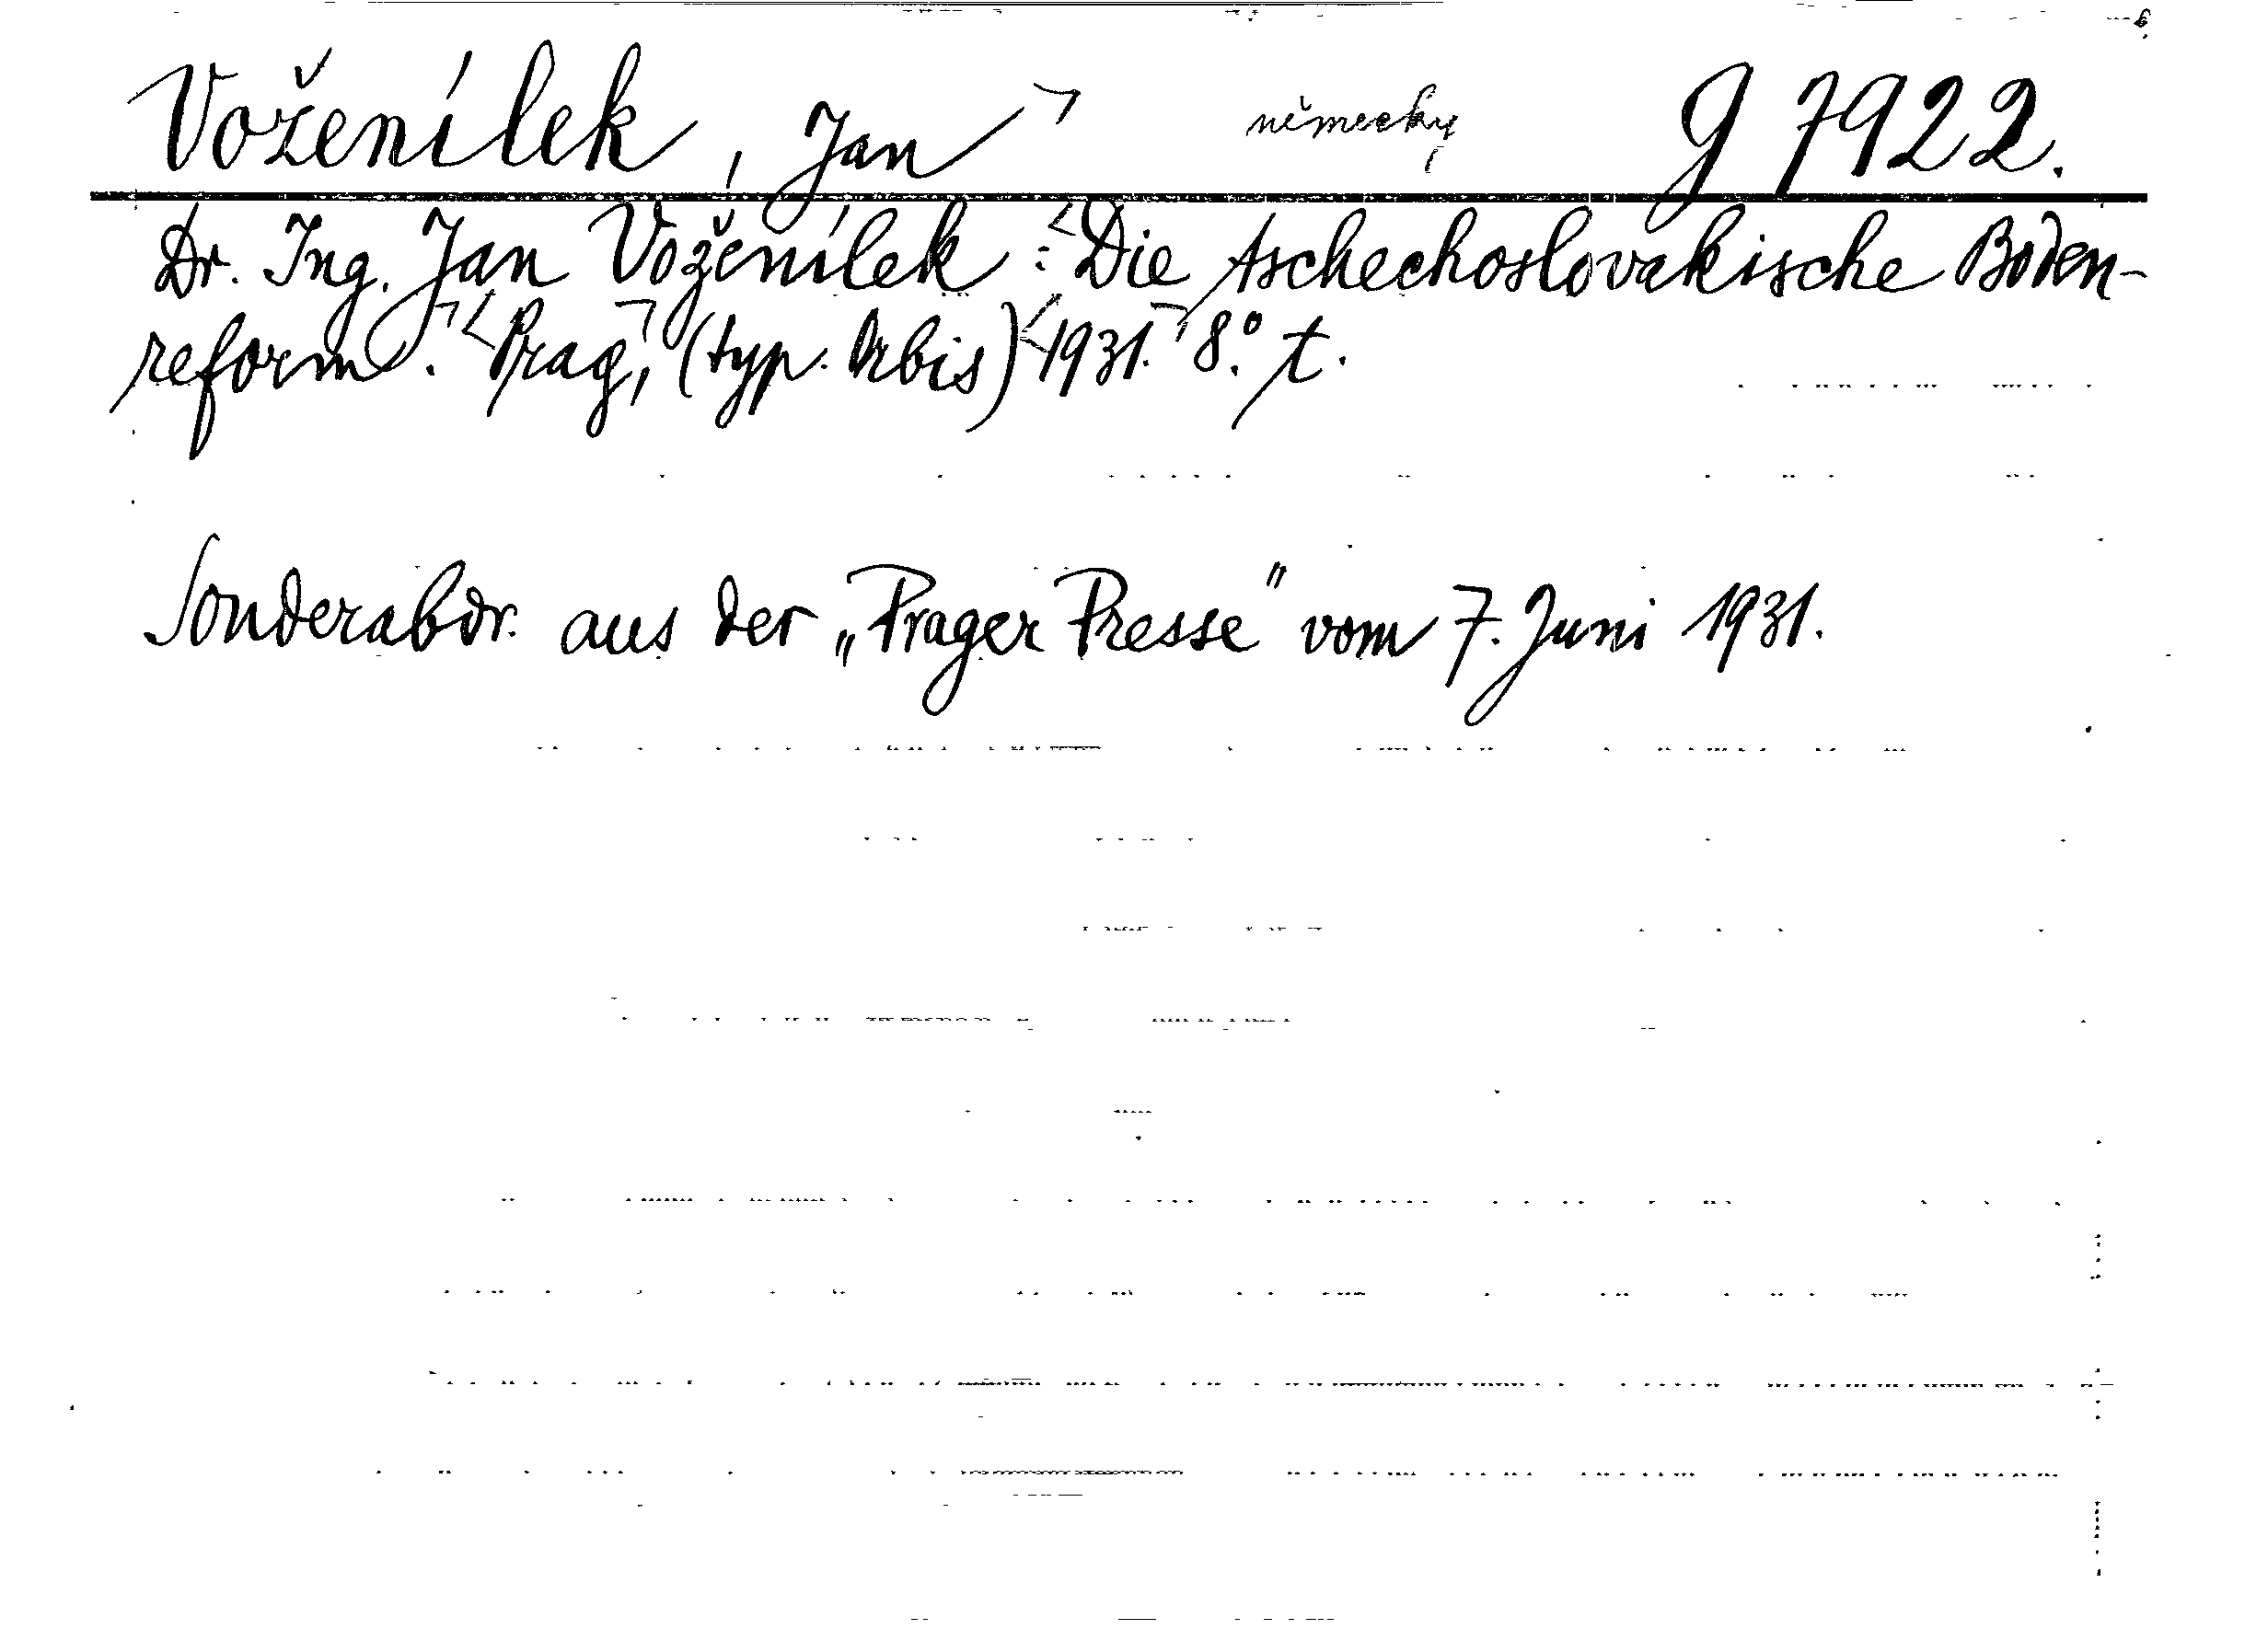 Voženílek, Jan německy g 7922.
Dr. Ing. Jan Voženílek: Die tschechoslovakische Boden-
reform. Prag, (typ. Orbis) 1931. 8.° t.
Sonderabdr. aus der „Prager Presse" vom 7. Juni 1931.